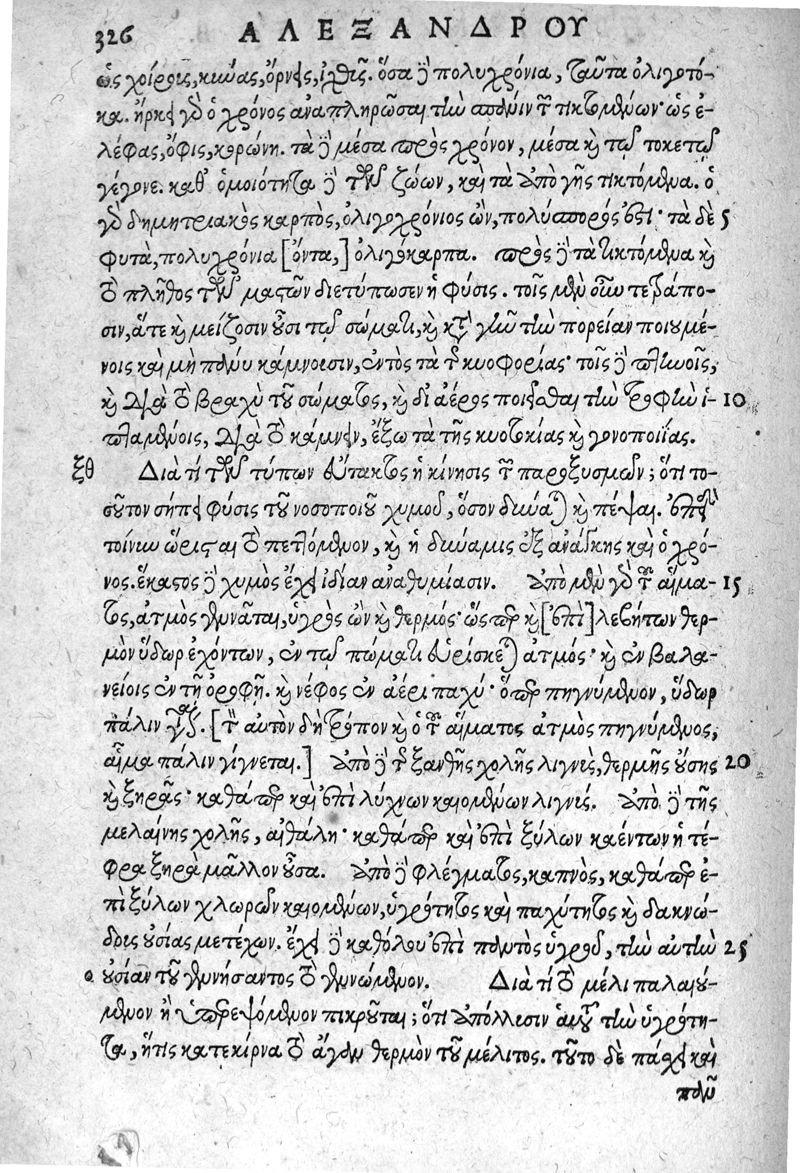 326 ΑΛΕΞΑΝΔΡΟΥ
ὡς χοίροις, κύνας, ὄρνεις, ἰχθῦς. ὅσα δὲ πολυχρόνια, ταῦτα ὀλιγοτό-
κα. ἤρκει γὰρ ὁ χρόνος ἀναπληρῶσαι τὴν σπάνιν τῶν τικτομένων· ὡς ἐ-
λέφας, ὄφις, κορώνη. τὰ δὲ μέσα πρὸς χρόνον, μέσα καὶ τῷ τοκετῷ
γέγονε. καθ’ ὁμοιότητα δὲ τῶν ζώων, καὶ τὰ ἀπὸ γῆς τικτόμενα. ὁ
γὰρ δημητριακὸς καρπὸς, ὀλιγοχρόνιος ὢν, πολύσπορός ἐστι· τὰ δὲ 5
φυτὰ, πολυχρόνια [ὄντα,] ὀλιγόκαρπα. πρὸς δὲ τὰ τικτόμενα καὶ
τὸ πλῆθος τῶν μαστῶν διετύπωσεν ἡ φύσις. τοῖς μὲν οὖν τετράπο-
σιν, ἅτε καὶ μείζοσιν οὖσι τῷ σώματι, καὶ κατὰ γῆν τὴν πορείαν ποιουμέ-
νοις καὶ μὴ πάνυ κάμνουσιν, ἐντὸς τὰ τῆς κυοφορίας· τοῖς δὲ πτηνοῖς,
καὶ διὰ τὸ βραχὺ τοῦ σώματος, καὶ δι’ ἀέρος ποιεῖσθαι τὴν τροφὴν ἱ- 10
πταμένοις, διὰ τὸ κάμνειν, ἔξω τὰ τῆς κυοτοκίας καὶ γονοποιΐας.
ξθ Διὰ τί τῶν τύπων εὔτακτος ἡ κίνησις τῶν παροξυσμῶν; ὅτι το-
σοῦτον σήπει φύσις τοῦ νοσοποιοῦ χυμοῦ, ὅσον δύναται καὶ πέψαι. ἐπεὶ
τοίνυν ὥρισται τὸ πεττόμενον, καὶ ἡ δύναμις ἐξ ἀνάγκης καὶ ὁ χρό-
νος. ἕκαστος δὲ χυμὸς ἔχει ἰδίαν ἀναθυμίασιν. ἀπὸ μὲν γὰρ τοῦ αἵμα- 15
τος, ἀτμὸς γεννᾶται, ὑγρὸς ὢν καὶ θερμός· ὥσπερ καὶ [ἐπὶ] λεβήτων θερ-
μὸν ὕδωρ ἐχόντων, ἐν τῷ πώματι εὑρίσκεται ἀτμός· καὶ ἐν βαλα-
νείοις ἐν τῇ ὀροφῇ. καὶ νέφος ἐν ἀέρι παχύ· ὅπερ πηγνύμενον, ὕδωρ
πάλιν γίνεται. [τὸν αὐτὸν δὴ τρόπον καὶ ὁ τοῦ αἵματος ἀτμὸς πηγνύμενος,
αἷμα πάλιν γίγνεται.] ἀπὸ δὲ τῆς ξανθῆς χολῆς λιγνὺς, θερμῆς οὔσης 20
καὶ ξηρᾶς· καθάπερ καὶ ἐπὶ λύχνων καιομένων λιγνύς. ἀπὸ δὲ τῆς
μελαίνης χολῆς, αἰθάλη· καθάπερ καὶ ἐπὶ ξύλων καέντων ἡ τέ-
φρα ξηρὰ μᾶλλον οὖσα. ἀπὸ δὲ φλέγματος, καπνὸς, καθάπερ ἐ-
πὶ ξύλων χλωρῶν καιομένων, ὑγρότητος καὶ παχύτητος καὶ δακνώ-
δους οὐσίας μετέχων. ἔχει δὲ καθόλου ἐπὶ παντὸς ὑγροῦ, τὴν αὐτὴν 25
οὐσίαν τοῦ γεννήσαντος τὸ γεννώμενον. Διὰ τί τὸ μέλι παλαιού-
μενον ἢ ὑπερεψόμενον πικροῦται; ὅτι ἀπόλλεσιν αὑτοῦ τὴν ὑγρότη-
τα, ἥτις κατεκίρνα τὸ ἄγαν θερμὸν τοῦ μέλιτος. τοῦτο δὲ πάσχει καὶ
πάνυ